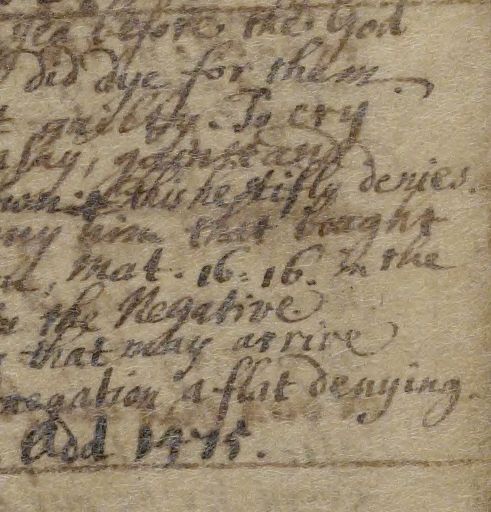 before the God
did dye for them.
guilty. To cry
own: & this he stifly denies.
him that bought
Mat. 16. 16. In the
the Negative
that may arrive
negation a flat denying.
Add 1475.